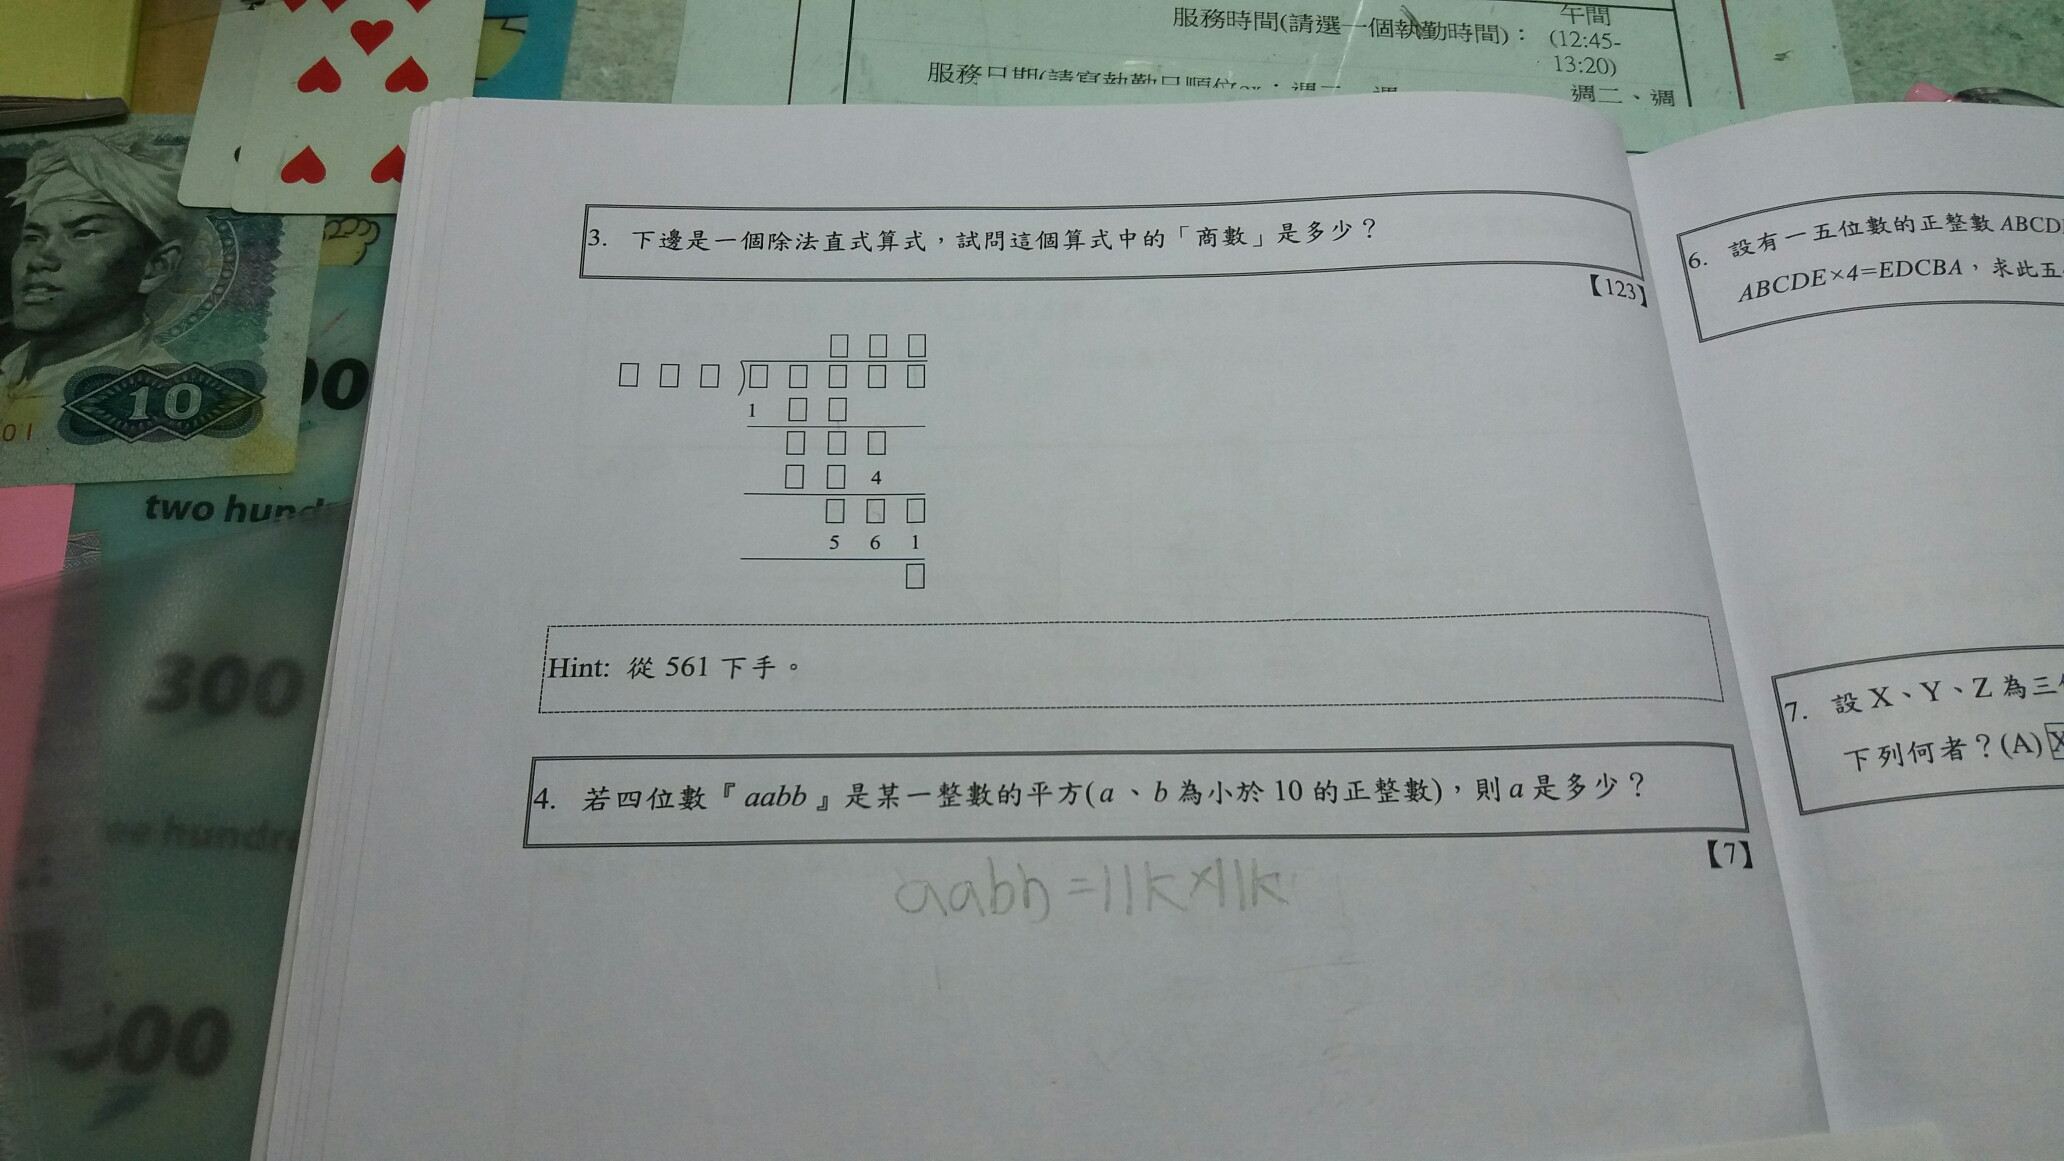 服務時間(請選一個執勤時間)：
午間
(12:45-
13:20)
週二、週
10
01
00
two hund
300
ee hundre
00
3. 下邊是一個除法直式算式，試問這個算式中的「商數」是多少？
【123】
□ □ □
□ □ □ )□ □ □ □ □
1 □ □
□ □ □
□ □ 4
□ □ □
5 6 1
□
Hint: 從 561 下手。
4. 若四位數『aabb』是某一整數的平方(a、b 為小於 10 的正整數)，則 a 是多少？
【7】
aabb =11k×11k
6. 設有一五位數的正整數 ABCD
ABCDE×4=EDCBA，求此五
7. 設 X、Y、Z 為三
下列何者？(A) X